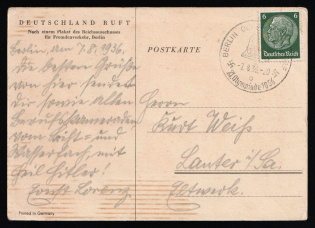 DEUTSCHLAND RUFT
Nach einem Plakat des Reichsausschusses
für Fremdenverkehr, Berlin
POSTKARTE
BERLIN
6 6
Deutsches Reich
XI. Olympiade 1936
Berlin, am 7.8.1936.
die besten Grüße
von hier sendet
Dir sowie allen
Berufskameraden
vom Licht- und
Wasserfach, mit
Heil Hitler!
Herrn
Kurt Weiß
Lauter i/Sa.
Eltwerk.
Printed in Germany